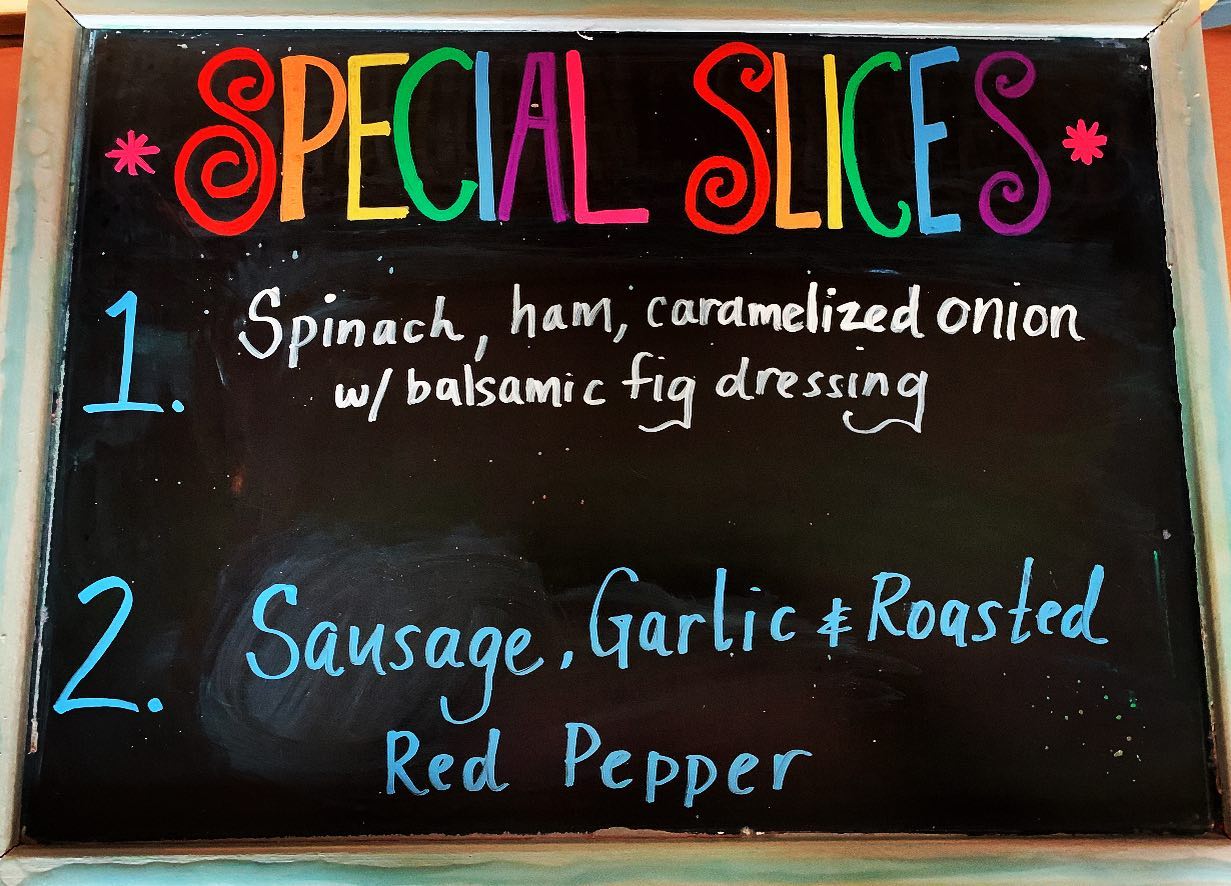 * SPECIAL SLICES *
1. Spinach, ham, caramelized onion
w/ balsamic fig dressing
2. Sausage, Garlic & Roasted
Red Pepper